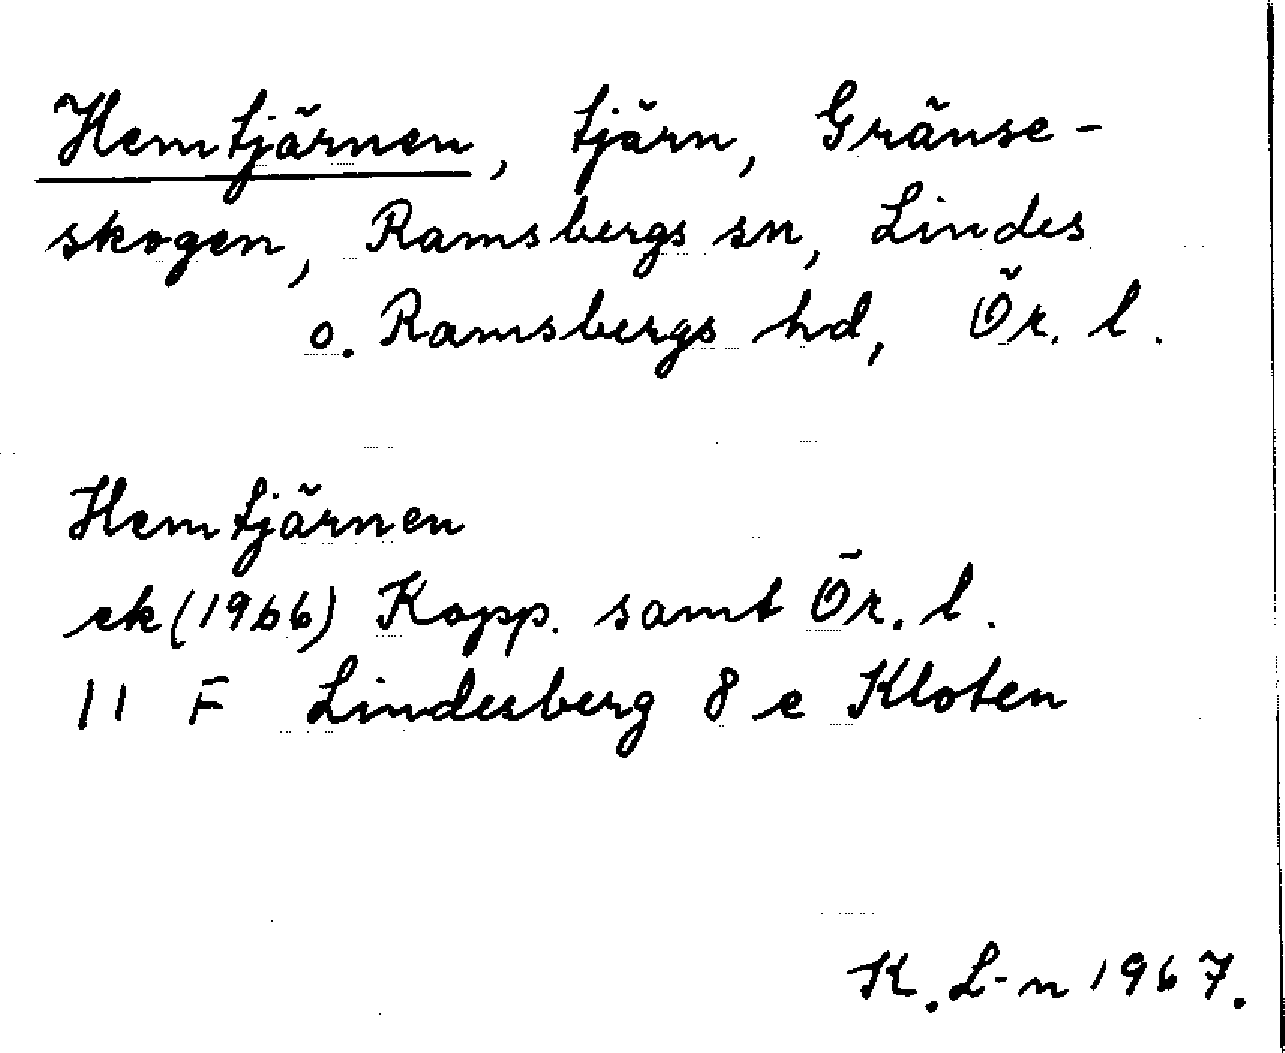 Hemtjärnen, tjärn, Gränse-
skogen, Ramsbergs sn, Lindes
o. Ramsbergs hd, Ör. l.
Hemtjärnen
ek (1966) Kopp. samt Ör. l.
11 F Lindesberg 8 e Kloten
K. L-n 1967.